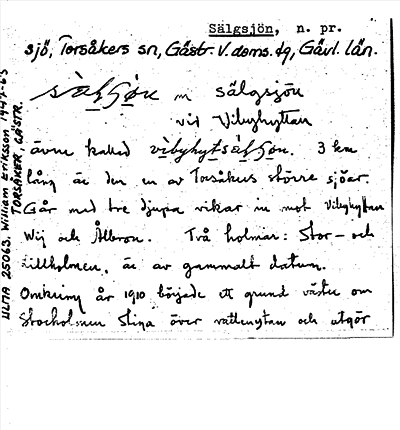 Sälgsjön, n. pr.
sjö, Torsåkers sn, Gästr. V. doms. fq, Gävl. län.
sälgsjön
vid Vibyhyttan
även kallad vibyhytsälsjön. 3 km
lång är den en av Torsåkers större sjöar.
Går med tre djupa vikar in mot Vibyhyttan
Wij och Ålbron. Två holmar: Stor- och
Lillholmen, är av gammalt datum.
Omkring år 1910 började ett grund väster om
Storholmen stiga över vattenytan och utgör
ULMA 25063. William Eriksson 1947-63
TORSÅKER, GÄSTR.